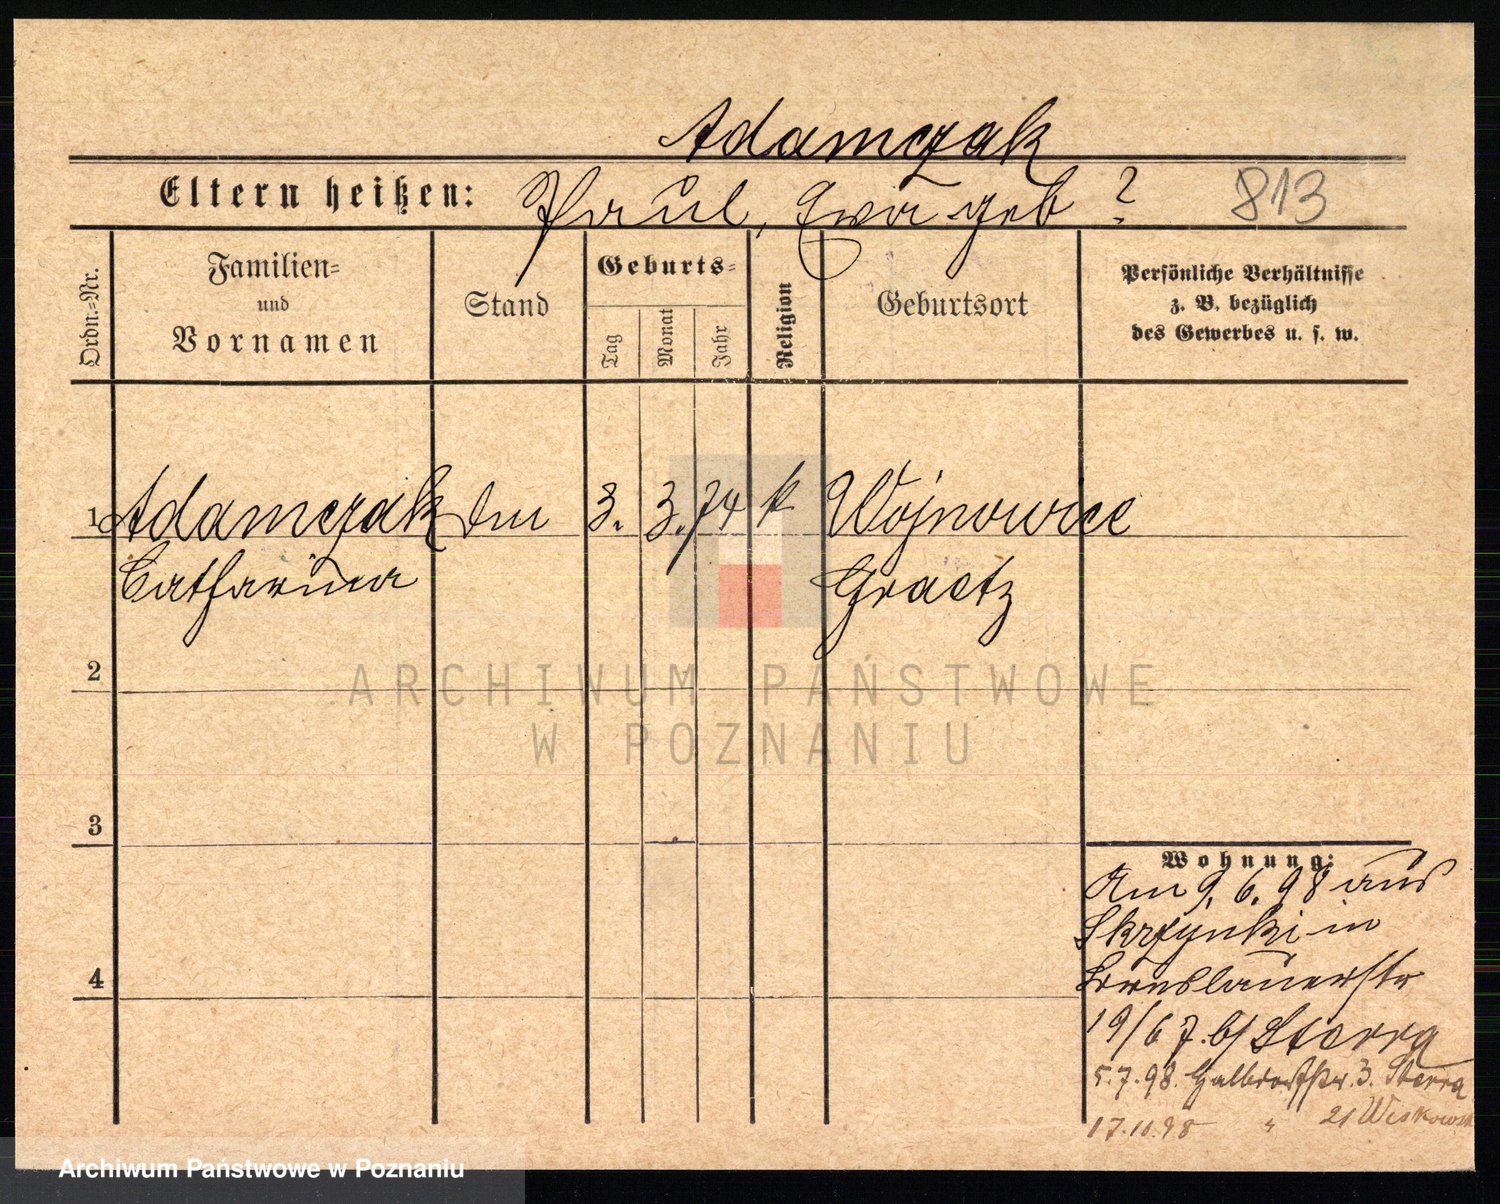 Adamczak
Eltern heißen: Paul, Ewa geb ? 813
Ordn.-Nr.
Familien-
und
Vornamen
Stand
Geburts-
Tag
Monat
Jahr
Religion
Geburtsort
Persönliche Verhältnisse
z. B. bezüglich
des Gewerbes u. s. w.
1 Adamczak 3. 3. 74 k Wojnowice
Catharina Graetz
2
ARCHIWUM PAŃSTWOWE
W POZNANIU
3
4
Wohnung:
Am 9. 6. 98 aus
Skrzynki in
Breslauerstr
19/6 7. b/ Sterra
5.7.98. Halbdorfstr. 3. Sterra
17.11.98 " 21
Archiwum Państwowe w Poznaniu